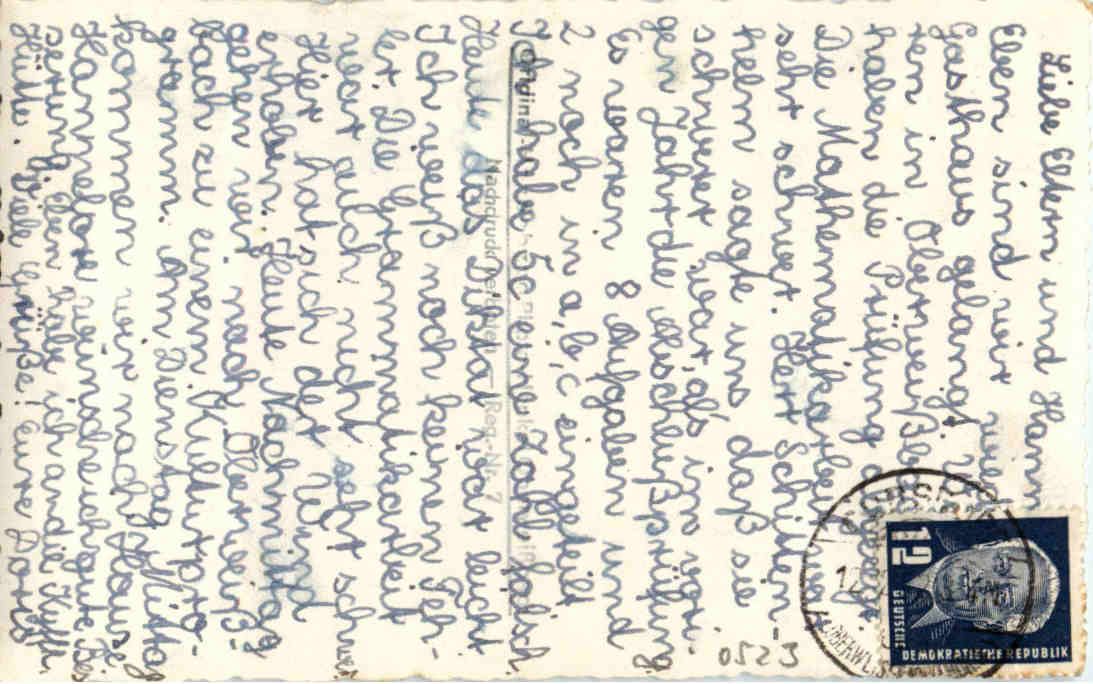 Liebe Eltern und Hann
Eben sind wir
Gasthaus gelangt.
ten in Oberweißb
haben die Prüfung
Die Mathematikarbeit war
sehr schwer. Herr
heim sagte uns daß sie
schwerer war, als im vori-
gem Jahr die Abschlußprüfung
Es waren 8 Aufgaben und
2 noch in a, b, c eingeteilt
Ich habe 5c eine Zahl falsch
Heute das Diktat war leicht
Ich weiß noch keinen Feh-
ler. Die Grammatikarbeit
war auch nicht sehr schwer
Hier hat sich der Wind
erhoben. Heute Nachmittag
gehen wir nach Oberweiß-
bach zu einem Kulturpro-
gramm. Am Dienstag Mittag
kommen wir nach Hause
Hannelore wünsche ich gute Bes-
serung den habe ich an die
Hütte. Viele Grüße! Eure
Original
Nachdruck verboten Reg.-Nr. 7
0523
12
DEUTSCHE
DEMOKRATISCHE REPUBLIK